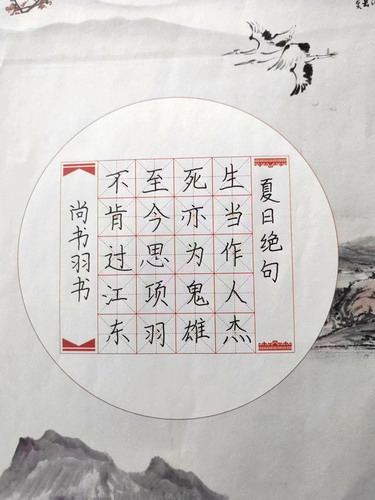 夏日绝句
生当作人杰
死亦为鬼雄
至今思项羽
不肯过江东
尚书羽书